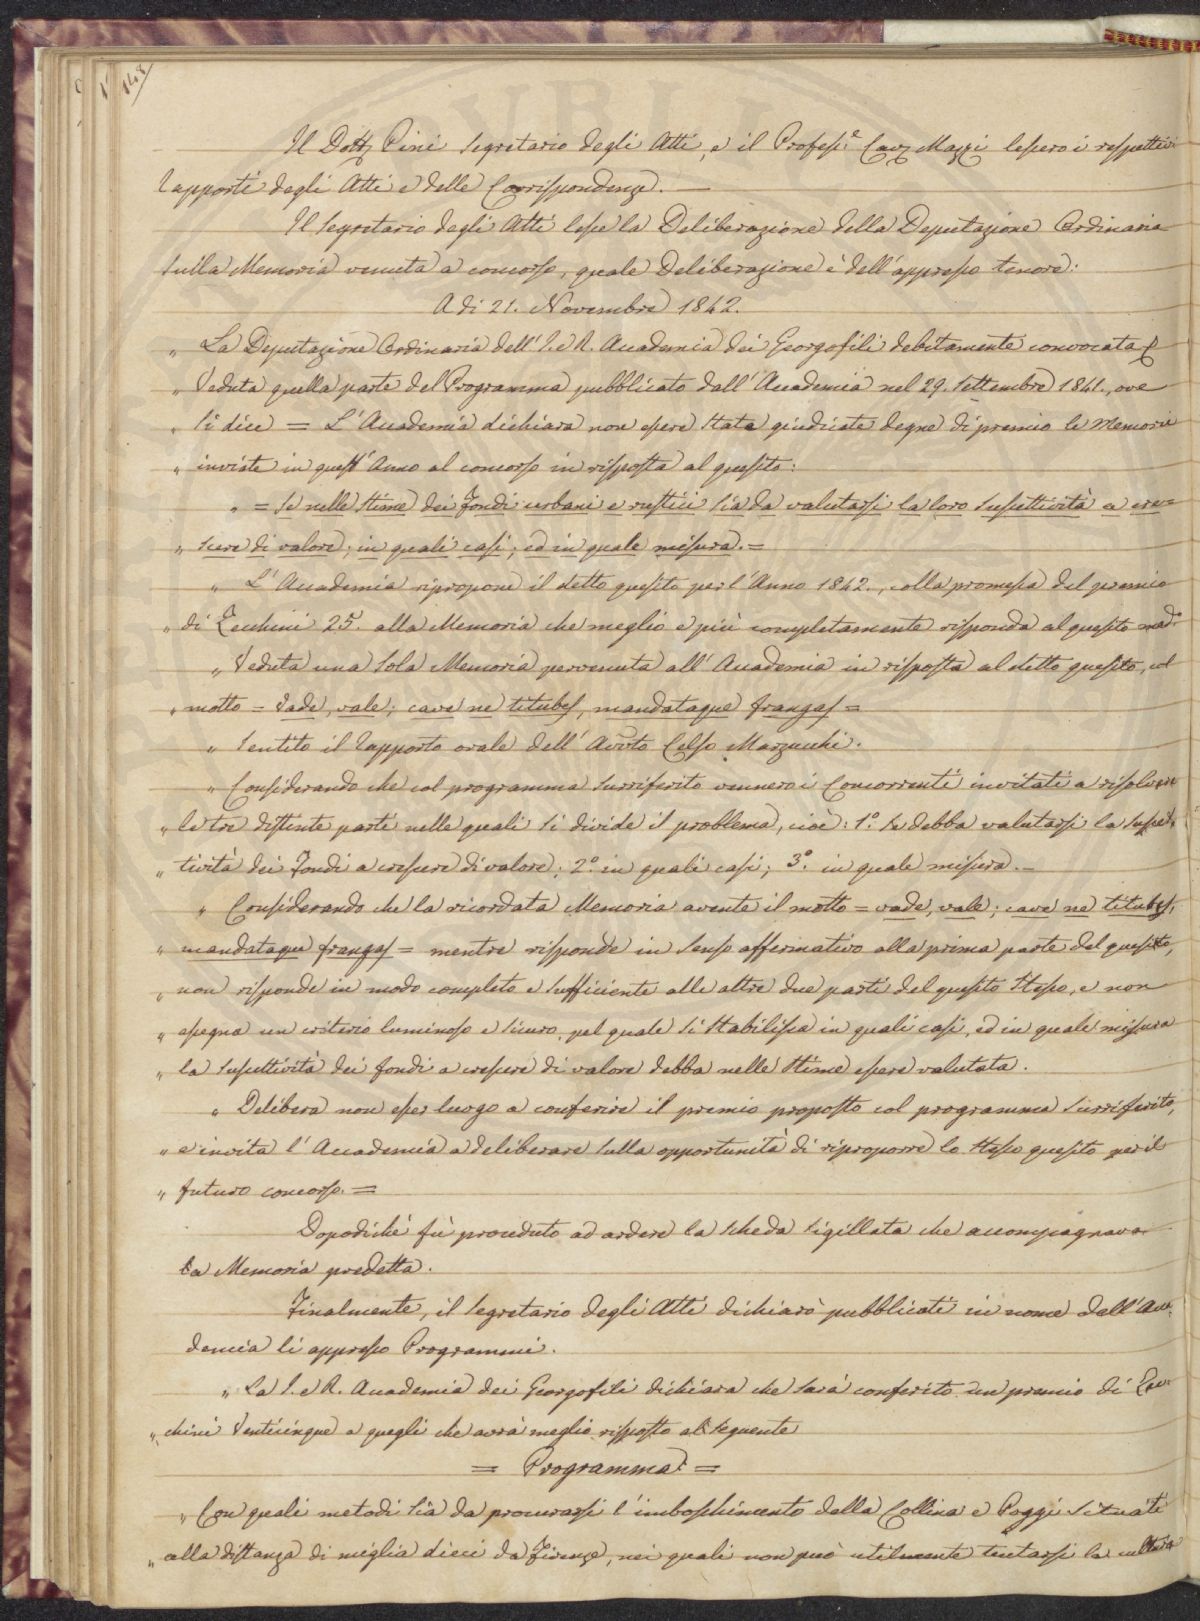 148
Il Dott. Pini Segretario degli Atti, e il Profess.e Cav. Mazzi lessero i respettivi
rapporti degli Atti e delle Corrispondenze.
Il Segretario degli Atti lesse la Deliberazione della Deputazione Ordinaria
sulla Memoria venuta a concorso, quale Deliberazione è dell'appresso tenore:
A dì 21. Novembre 1842.
„ La Deputazione Ordinaria dell'I. e R. Accademia dei Georgofili debitamente convocata
„ Veduta quella parte del Programma pubblicato dall'Accademia nel 29. Settembre 1841., ove
„ si dice = L'Accademia dichiara non essere stata giudicata degna di premio le Memorie
„ inviate in quest'Anno al concorso in risposta al quesito:
„ = Se nelle stime dei fondi urbani e rustici sia da valutarsi la loro suscettività a cre=
„ scere di valore; in quali casi; ed in quale misura. =
„ L'Accademia ripropone il detto quesito per l'Anno 1842., colla promessa del premio
„ di Zecchini 25. alla Memoria che meglio e più completamente risponda al quesito med.o
„ Veduta una sola Memoria pervenuta all'Accademia in risposta al detto quesito, col
„ motto = Vade, vale; cave ne titubes, mandataque frangas =
„ Sentito il rapporto orale dell'Avv.to Celso Marzucchi.
„ Considerando che col programma surriferito vennero i Concorrenti invitati a risolvere
„ le tre distinte parti nelle quali si divide il problema, cioè: 1.o Se debba valutarsi la suscet=
„ tività dei fondi a crescere di valore; 2.o in quali casi; 3.o in quale misura. –
„ Considerando che la ricordata Memoria avente il motto = vade, vale; cave ne titubes,
„ mandataque frangas = mentre risponde in senso affermativo alla prima parte del quesito,
„ non risponde in modo completo e sufficiente alle altre due parti del quesito stesso, e non
„ assegna un criterio luminoso e sicuro, pel quale si stabilisca in quali casi, ed in quale misura
„ la suscettività dei fondi a crescere di valore debba nelle stime essere valutata.
„ Delibera non esser luogo a conferire il premio proposto col programma surriferito,
„ e invita l'Accademia a deliberare sulla opportunità di riproporre lo stesso quesito per il
„ futuro concorso. =
Dopodichè fù proceduto ad ardere la scheda sigillata che accompagnava
la Memoria predetta.
Finalmente, il Segretario degli Atti dichiarò pubblicati in nome dell'Acca=
demia li appresso Programmi.
„ La I. e R. Accademia dei Georgofili dichiara che sarà conferito un premio di Zec=
„ chini Venticinque a quegli che avrà meglio risposto al seguente
= Programma =
„ Con quali metodi sia da procurarsi l'imboschimento delle Colline e Poggi situati
„ alla distanza di miglia dieci da Firenze, nei quali non può utilmente tentarsi la cultura